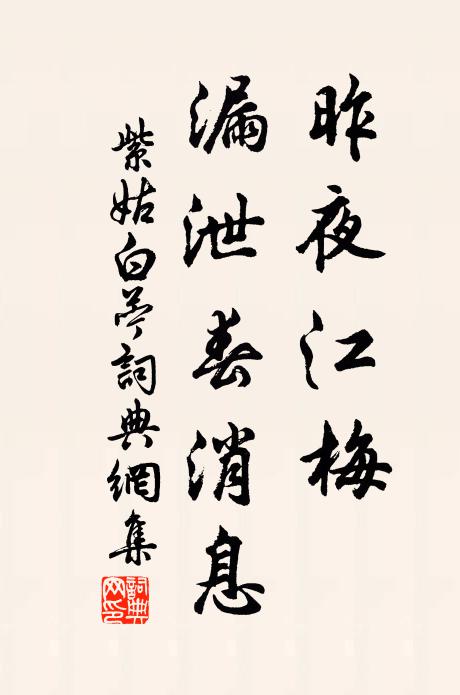 昨夜江梅
漏泄春消息
紫姑白苎詞典網集
詞典网印